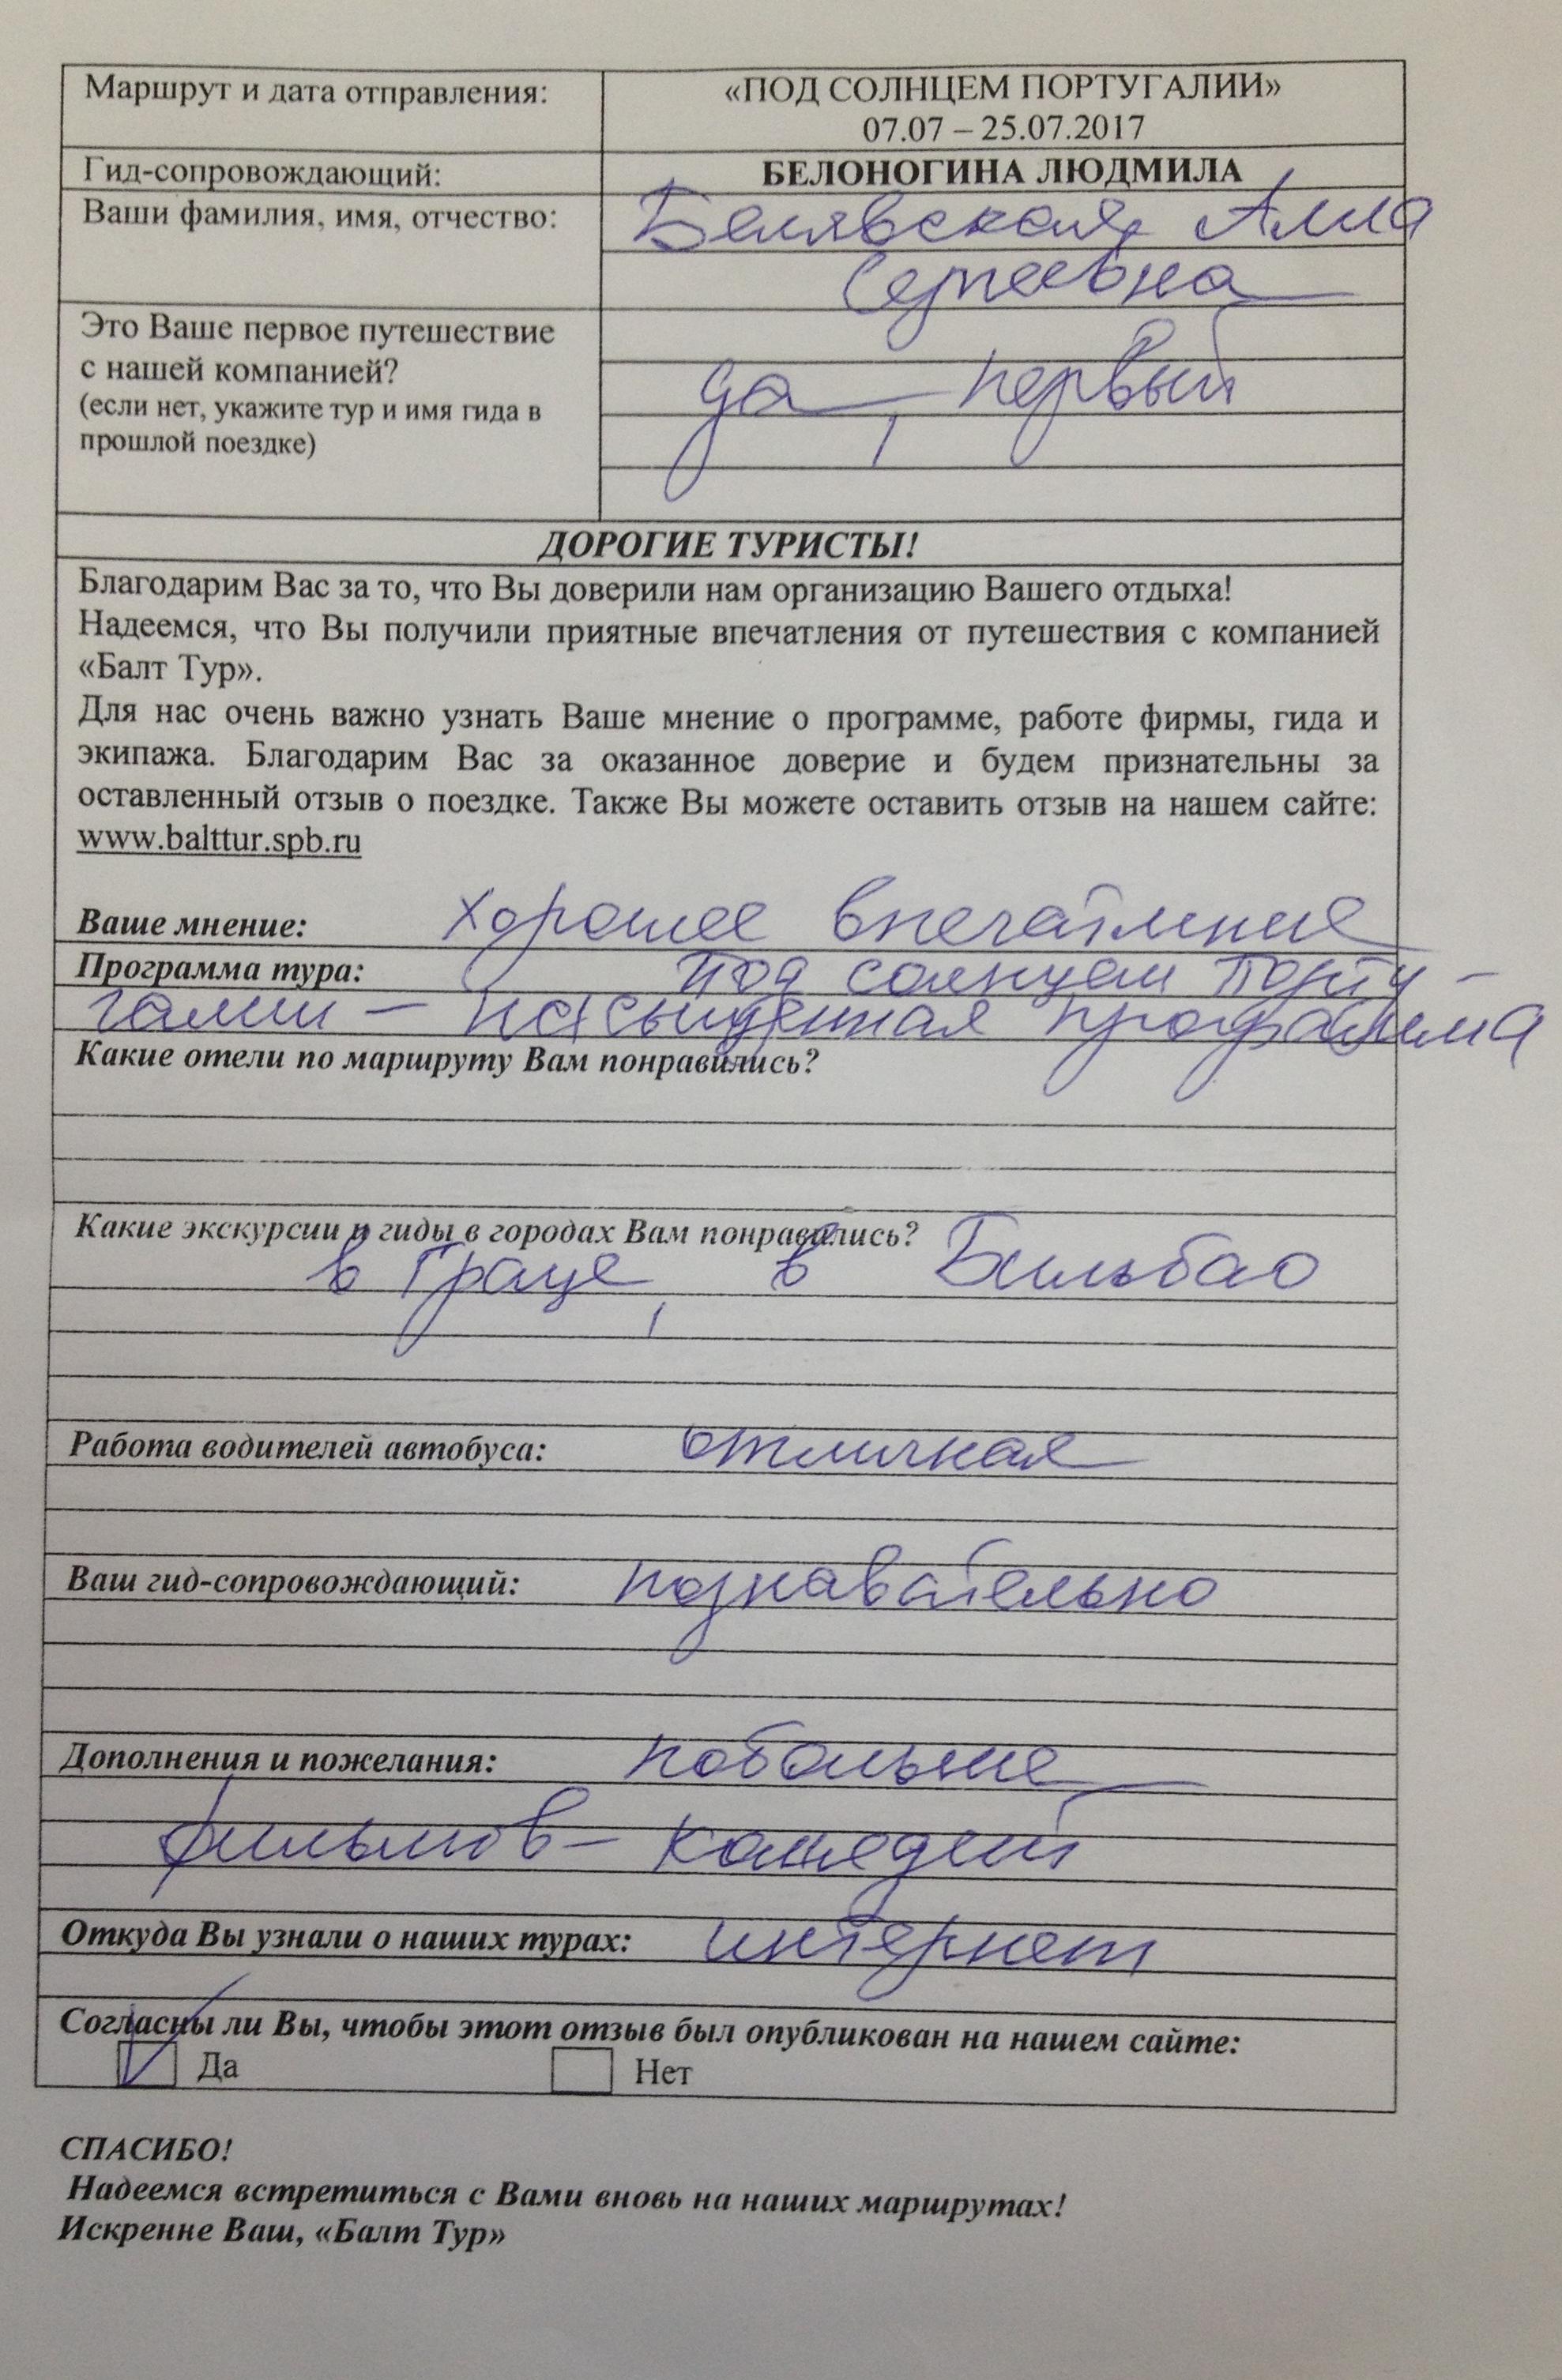 Маршрут и дата отправления:
«ПОД СОЛНЦЕМ ПОРТУГАЛИИ»
07.07 – 25.07.2017
Гид-сопровождающий:
БЕЛОНОГИНА ЛЮДМИЛА
Ваши фамилия, имя, отчество:
Белявская Алла
Сергеевна
Это Ваше первое путешествие
с нашей компанией?
(если нет, укажите тур и имя гида в
прошлой поездке)
да, первый
ДОРОГИЕ ТУРИСТЫ!
Благодарим Вас за то, что Вы доверили нам организацию Вашего отдыха!
Надеемся, что Вы получили приятные впечатления от путешествия с компанией
«Балт Тур».
Для нас очень важно узнать Ваше мнение о программе, работе фирмы, гида и
экипажа. Благодарим Вас за оказанное доверие и будем признательны за
оставленный отзыв о поездке. Также Вы можете оставить отзыв на нашем сайте:
www.balttur.spb.ru
Ваше мнение: хорошее впечатление
Программа тура: Под солнцем Порту-
галии – насыщенная программа
Какие отели по маршруту Вам понравились?
Какие экскурсии и гиды в городах Вам понравились?
в Граце, в Бильбао
Работа водителей автобуса: отличная
Ваш гид-сопровождающий: познавательно
Дополнения и пожелания: побольше
фильмов – комедий
Откуда Вы узнали о наших турах: интернет
Согласны ли Вы, чтобы этот отзыв был опубликован на нашем сайте:
Да Нет
СПАСИБО!
Надеемся встретиться с Вами вновь на наших маршрутах!
Искренне Ваш, «Балт Тур»